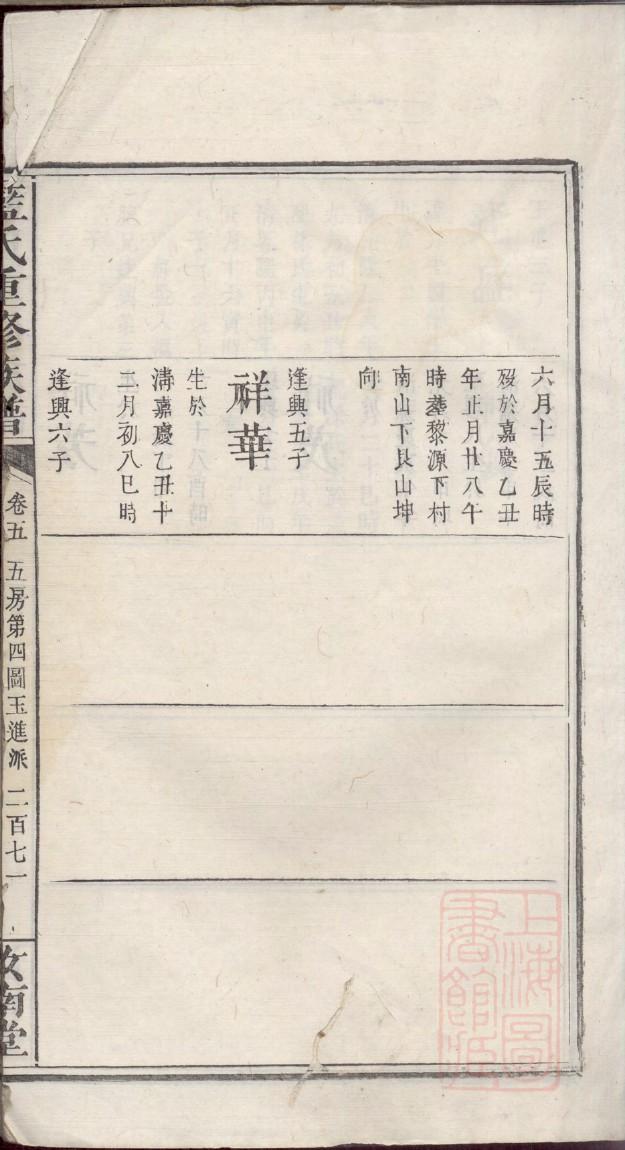 六月十五辰時
歿於嘉慶乙丑
年正月廿八午
時塟黎源下村
南山下艮山坤
向
逢興五子
祥華
生於
清嘉慶乙丑十
二月初八巳時
逢興六子
藍氏重修族譜
卷五
五房第四圖玉進派
二百七一
汝南堂
上海圖書館藏